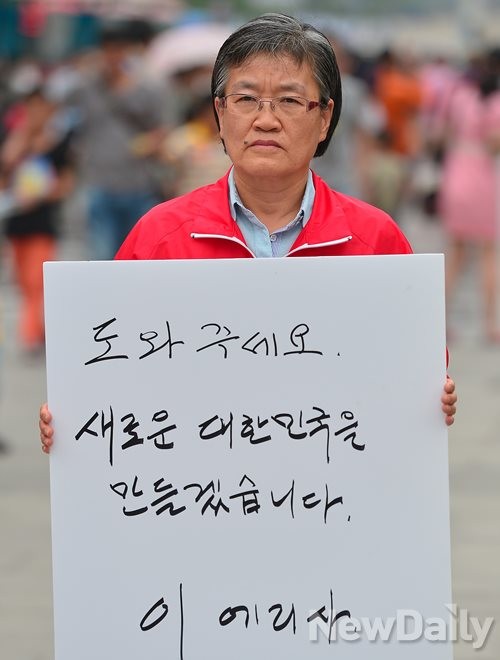 도와 주세요.
새로운 대한민국을
만들겠습니다.
이 에리사
NewDaily